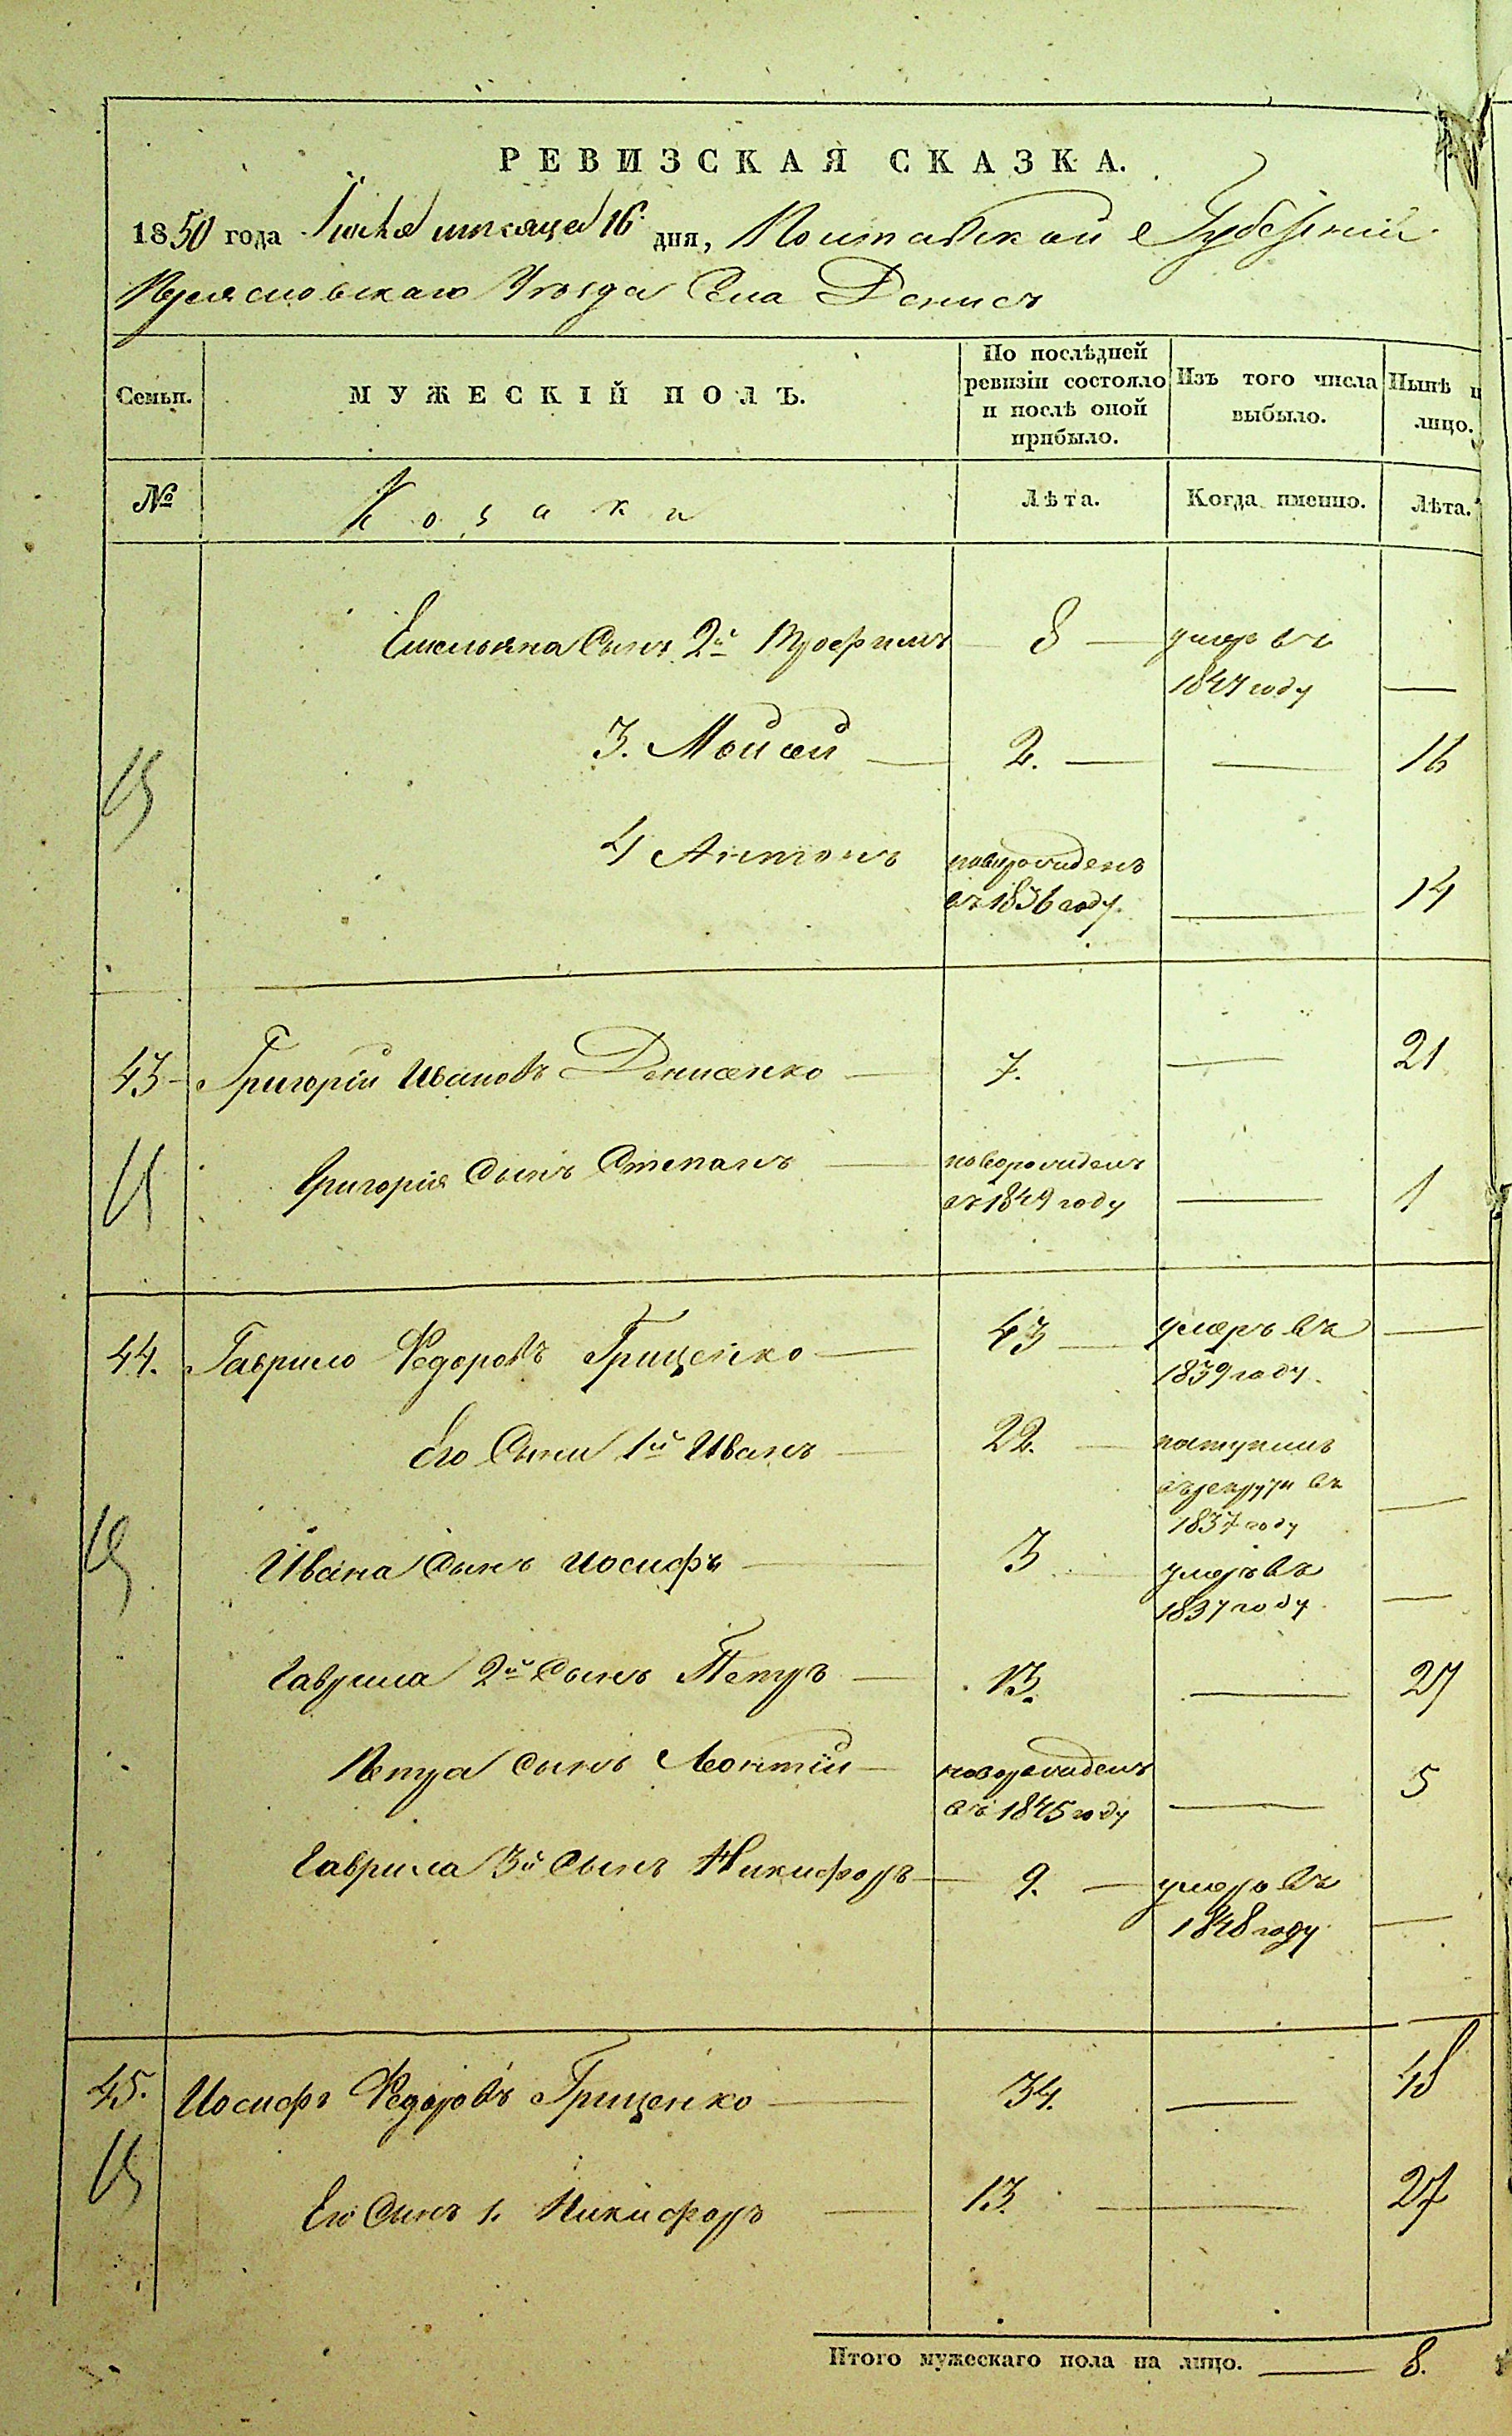 РЕВИЗСКАЯ СКАЗКА.
1850 года Іюля мѣсяца 16 дня, Полтавской Губерніи
Переяславскаго Уѣзда Села Денисъ
Семьи. МУЖЕСКІЙ ПОЛЪ. По послѣдней ревизіи состояло и послѣ оной прибыло. Изъ того числа выбыло. Нынѣ н лицо.
№ Козаки Лѣта. Когда именно. Лѣта.
Емельяна Сынъ 2й Трофимъ 8 умеръ въ
1847 году
3. Мойсей 2. 16
4 Антонъ новорожденъ
въ 1836 году. 14
43 Григорій Ивановъ Денисенко 7. 21
Григорія Сынъ Степанъ новорожденъ
въ 1849 году 1
44. Гаврило Федоровъ Гриценко 43 умеръ въ
1839 году.
Его Сыны 1й Иванъ 22. поступилъ
въ рекруты въ
1837 году
Ивана Сынъ Иосифъ 3 умеръ въ
1837 году.
Гаврила 2й Сынъ Петръ 13. 27
Петра сынъ Леонтій новорожденъ
въ 1845 году 5
Гаврила 3й Сынъ Никифоръ 9. умеръ въ
1848 году
45. Иосифъ Федоровъ Гриценко 34. 48
Его Сынъ 1. Никифоръ 13. 27
Итого мужескаго пола на лицо. 8.